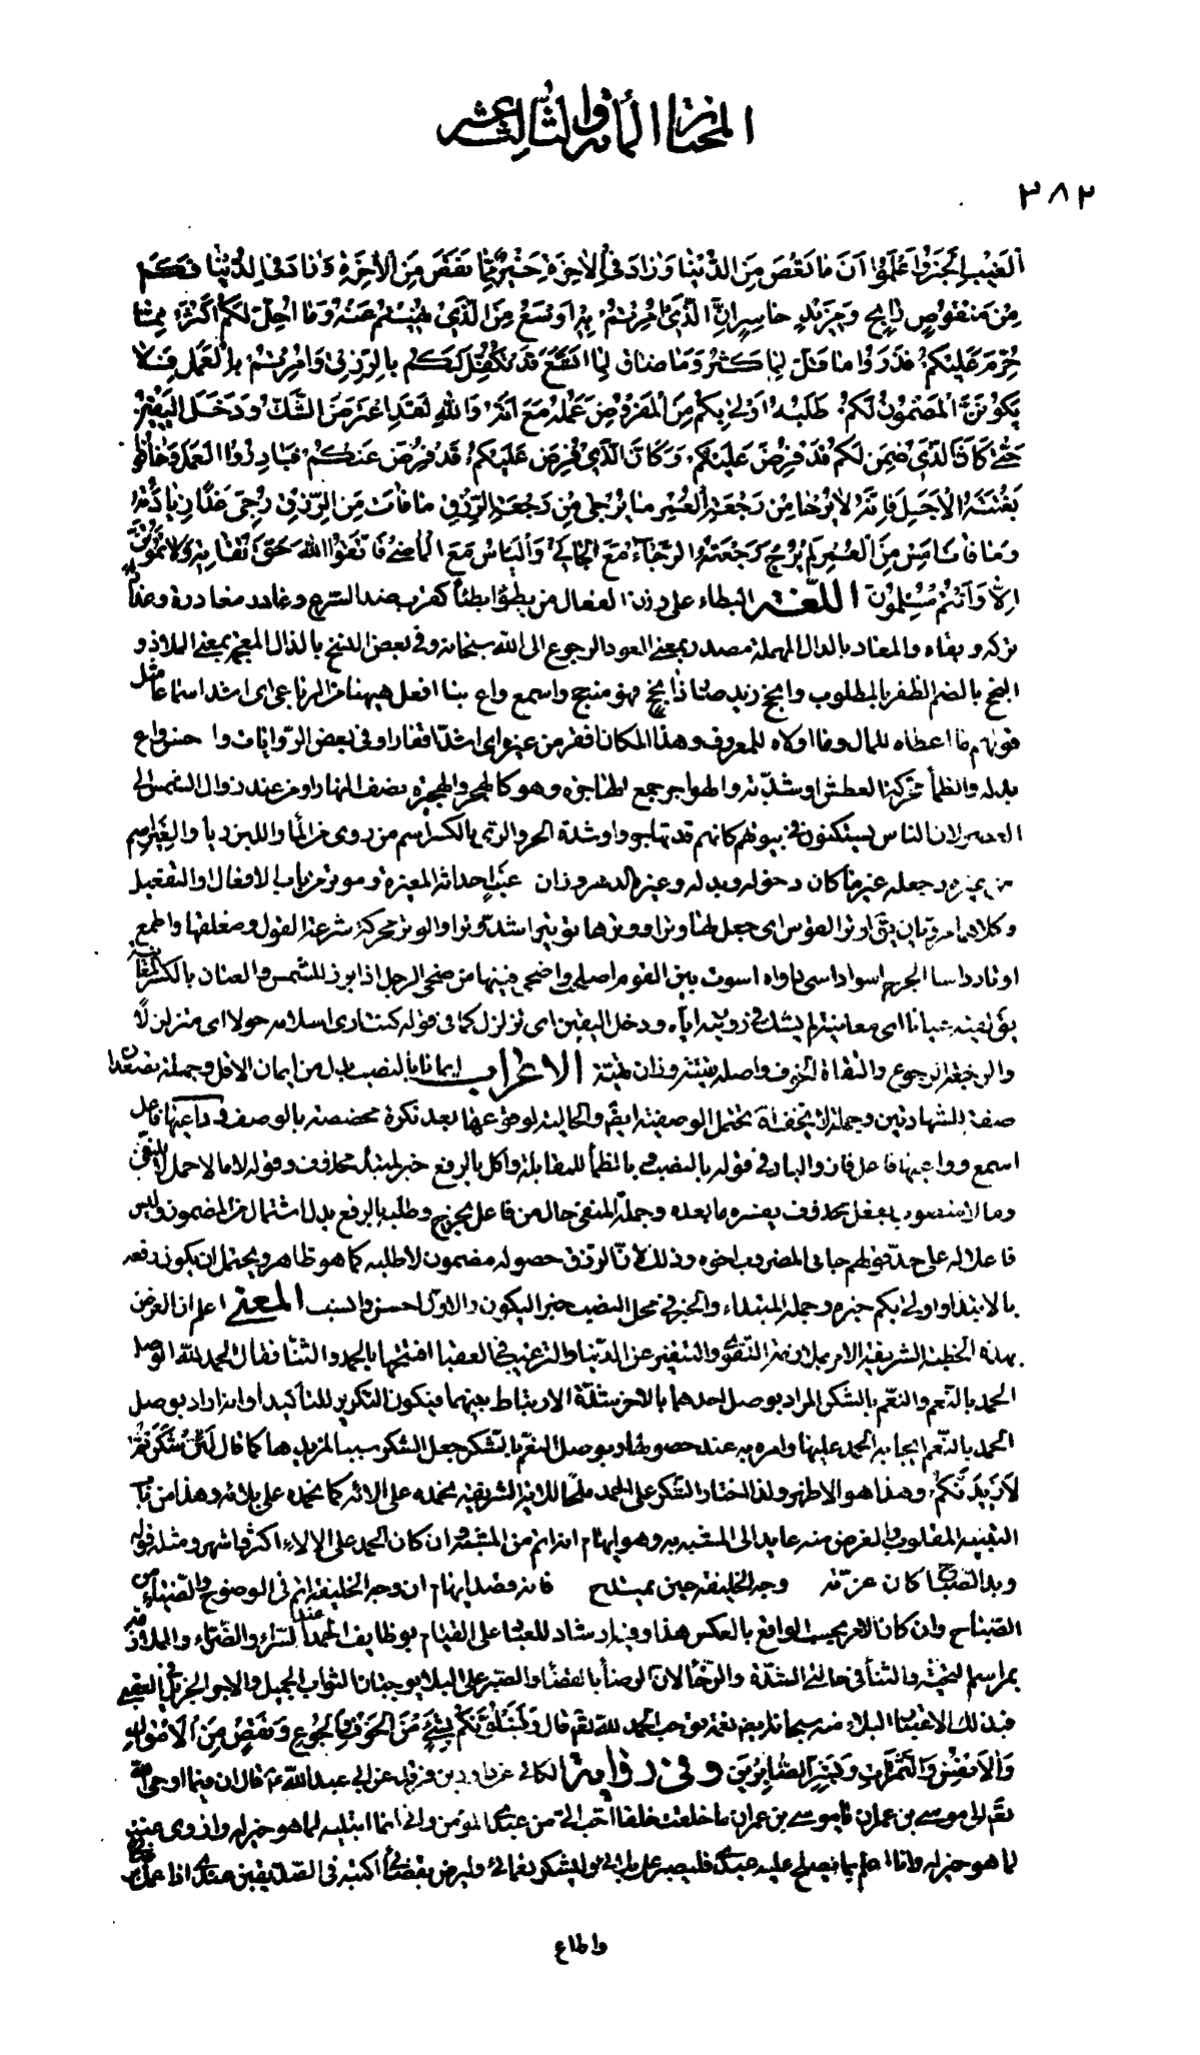 المختار المأة والثالث عشر
٣٨٢
الغيب الخبر واعلموا أن ما نقص من الدنيا وزاد في الاخرة خير مما نقص من الاخرة وزاد في الدنيا فكم
من منقوص رابح ومزيد خاسر ان الذي امرتم به اوسع من الذي نهيتم عنه وما احل لكم اكثر مما
حرم عليكم فذروا ما قل لما كثر وما ضاق لما اتسع قد تكفل لكم بالرزق وامرتم بالعمل فلا
يكونن المضمون لكم طلبه اولى بكم من المفروض عمله مع انه والله لقد اعترض الشك ودخل اليقين
حتى كان الذي ضمن لكم قد فرض عليكم وكان الذي فرض عليكم قد فرض عنكم فبادروا العمل وخافوا
بغتة الاجل فانه لا يرجى من رجعة العمر ما يرجى من رجعة الرزق ما فات من الرزق رجي غدا زيادته
وما فات امس من العمر لم يرج رجعته الرجاء مع الجائي والياس مع الماضي فاتقوا الله حق تقاته ولا تموتن
الا وانتم مسلمون اللغة البطاء على وزن الفعال من بطؤ ابطأ كقرب ضد السرع وغادر مغادرة وغدارا
تركه وبقاه والمعاد بالدال المهملة مصدر بمعنى العود الرجوع الى الله سبحانه وفي بعض النسخ بالذال المعجمة بمعنى الملاذ و
النجح بالضم الظفر بالمطلوب وانجح زيد صار ذا نجح فهو منجح واسمع واع بنا افعل ههنا من الرباعي اى اشد اسماعا مثل
قولهم ما اعطاه للمال وما اولاه للمعروف وهذا المكان اقفر من غيره اى اشد اقفارا وفي بعض الروايات واحسن واع
بدله والظمأ محركة العطش او شدته والهواجر جمع الهاجرة وهو كالهجر والهجيرة نصف النهار او من عند زوال الشمس الى
العصر لان الناس يستكنون في بيوتهم كانهم قد تهاجروا وشدة الحر والرى بالكسر اسم من روى من الماء واللبن ريا والغير اسم
من غيره جعله غير ما كان وحوله وبدله وغير الدهر وزان عنب احداثه المغيرة وموتر من باب الافعال والتفعيل
وكلاهما مرويان يق اوتر القوس اى جعل لها وترا ووترها توتيرا شد وترها والوتر محركة شرعة القوس ومعلقها والجمع
اوتار واسا الجرح اسوا داسى داواه اسوت بين القوم اصلحت واضحى فيئها من ضحى الرجل اذا برز للشمس والعنان بالكسر
يق لقيته عيانا اى معاينة لم يشك في رؤيته اياه ودخل اليقين اى تزلزل كما في قوله كنت ارى اسلامه مدخولا اى متزلزلا
والرجعة الرجوع والتقاة الخوف واصله تقية وزان تهمة الاعراب ايمانا بالنصب بدل من ايمان الاول وجملة تصعدان
صفة للشهادتين وجملة لا يخف تحتمل الوصفية ايضا والحالية لوقوعها بعد نكرة مخصصة بالوصف وداعيها فاعل
اسمع وواعيها فاعل فاز والباء في قوله بالنصب وبالظمأ للمقابلة واكل بالرفع خبر لمبتدء محذوف وقوله لا مال حمل لا للنفى
ومالا منصوب بفعل محذوف يفسره ما بعده وجملة المنفى حال من فاعل يخرج وطلبه بالرفع بدل اشتمال من المضمون وليس
فاعلا له على حد قولهم جاءنى المضروب اخوه وذلك لان الرزق حصوله مضمون لا طلبه كما هو ظاهر ويحتمل ان يكون رفعه
بالابتداء واولى بكم خبره وجملة المبتداء والخبر في محل النصب خبر اليكون والاول احسن وانسب المعنى اعلم ان الغرض
بهذه الخطبة الشريفة الامر بملازمة التقوى والتنفير عن الدنيا والترغيب في العقبا افتتحها بالحمد والثنا فقال الحمد لله الواصل
الحمد بالنعم والنعم بالشكر المراد بوصل احدهما بالاخر شدة الارتباط بينهما فيكون التكرير للتأكيد او اراد بوصل
الحمد بالنعم ايجابه الحمد عليها وامره به عند حصولها وبوصل النعم بالشكر جعل الشكر سببا للمزيد ها كما قال لئن شكرتم
لازيدنكم وهذا هو الاظهر ولذا اختار الشكر على الحمد ملحا للاية الشريفة نحمده على الائه كما نحمده على بلائه وهذا من باب
التشبيه المقلوب والغرض منه عايد الى المشبه به وهو ايهام انه اتم من المشبه وان كان الحمد على الالاء اكثر واشهر ومثله قوله
وبدا الصباح كان غرته وجه الخليفة حين يمتدح فانه قصد ايهام ان وجه الخليفة اتم في الوضوح والضياء من
الصباح وان كان الامر بحسب الواقع بالعكس هذا وفيه ارشاد للعباد على القيام بوظايف الحمد عند السراء والضراء والملازمة
بمراسم التحية والثنأ في حالتى الشدة والرخأ لان الرضأ بالقضأ والصبر على البلاء يوجبان الثواب الجميل والاجر الجزيل في العقبى
فبذلك الاعتبار البلاء منه سبحانه ايضا نعمة توجب الحمد لله تعم قال ولنبلونكم بشئ من الخوف والجوع ونقص من الاموال
والانفس والثمرات وبشر الصابرين وفي رواية الكافى عن داود بن فرقد عن ابى عبد الله ع قال ان فيما اوحى الله
تعم الى موسى بن عمران يا موسى بن عمران ما خلقت خلقا احب الى من عبدى المؤمن وانى انما ابتليه لما هو خير له وازوى عنه
لما هو خير له وانا اعلم بما يصلح عليه عبدى فليصبر على بلائى وليشكر نعمائى وليرض بقضائى اكتبه في الصديقين عندى اذا عمل برضائى
واطاع